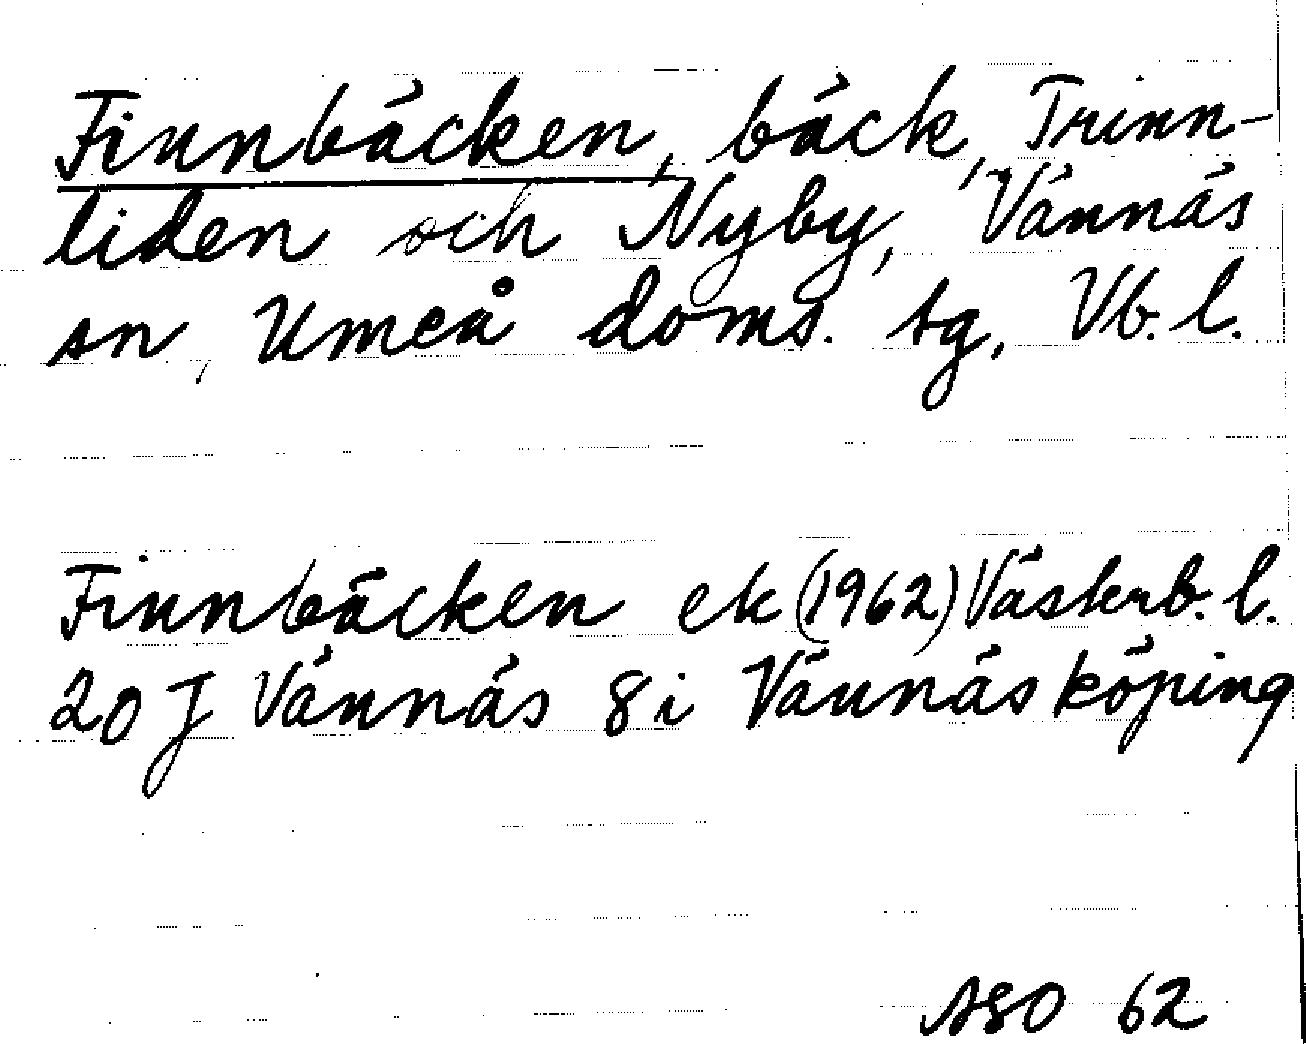 Finnbäcken, bäck, Trinn-
liden och Nyby, Vännäs
sn, Umeå doms. tg, Vb. l.
Finnbäcken ek (1962) Västerb. l.
20 J Vännäs 8 i Vännäs köping
ASO 62